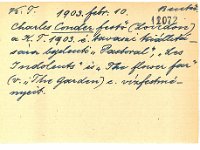 K. T. 1903. febr. 10. Beutó
12072
Charles Conder festő (London)
a K. T. 1903. é. tavaszi kiállítá-
sán bejelenti „Pastoral", „Les
Indolents" és „The flower fan"
(v. „The Garden) c. vízfestmé-
nyeit.